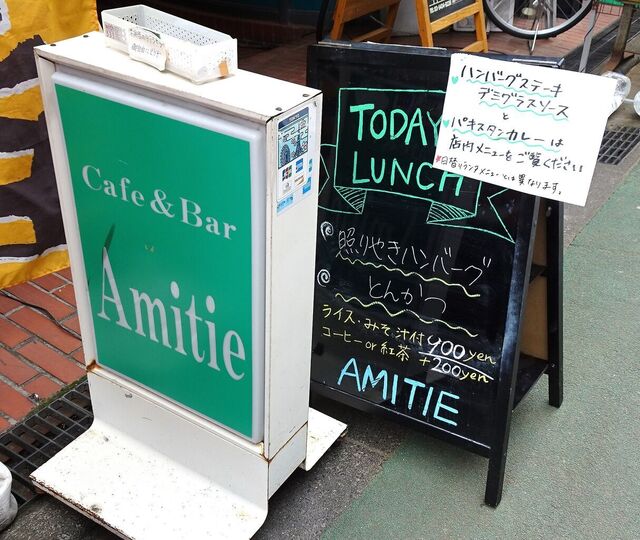 Cafe & Bar
Amitie
TODAY
LUNCH
照りやきハンバーグ
とんかつ
ライス・みそ汁付 900yen
コーヒー or 紅茶 +200yen
AMITIE
ハンバーグステーキ
デミグラスソース
と
パキスタンカレーは
店内メニューをご覧ください
日替りランチメニューとは異なります。